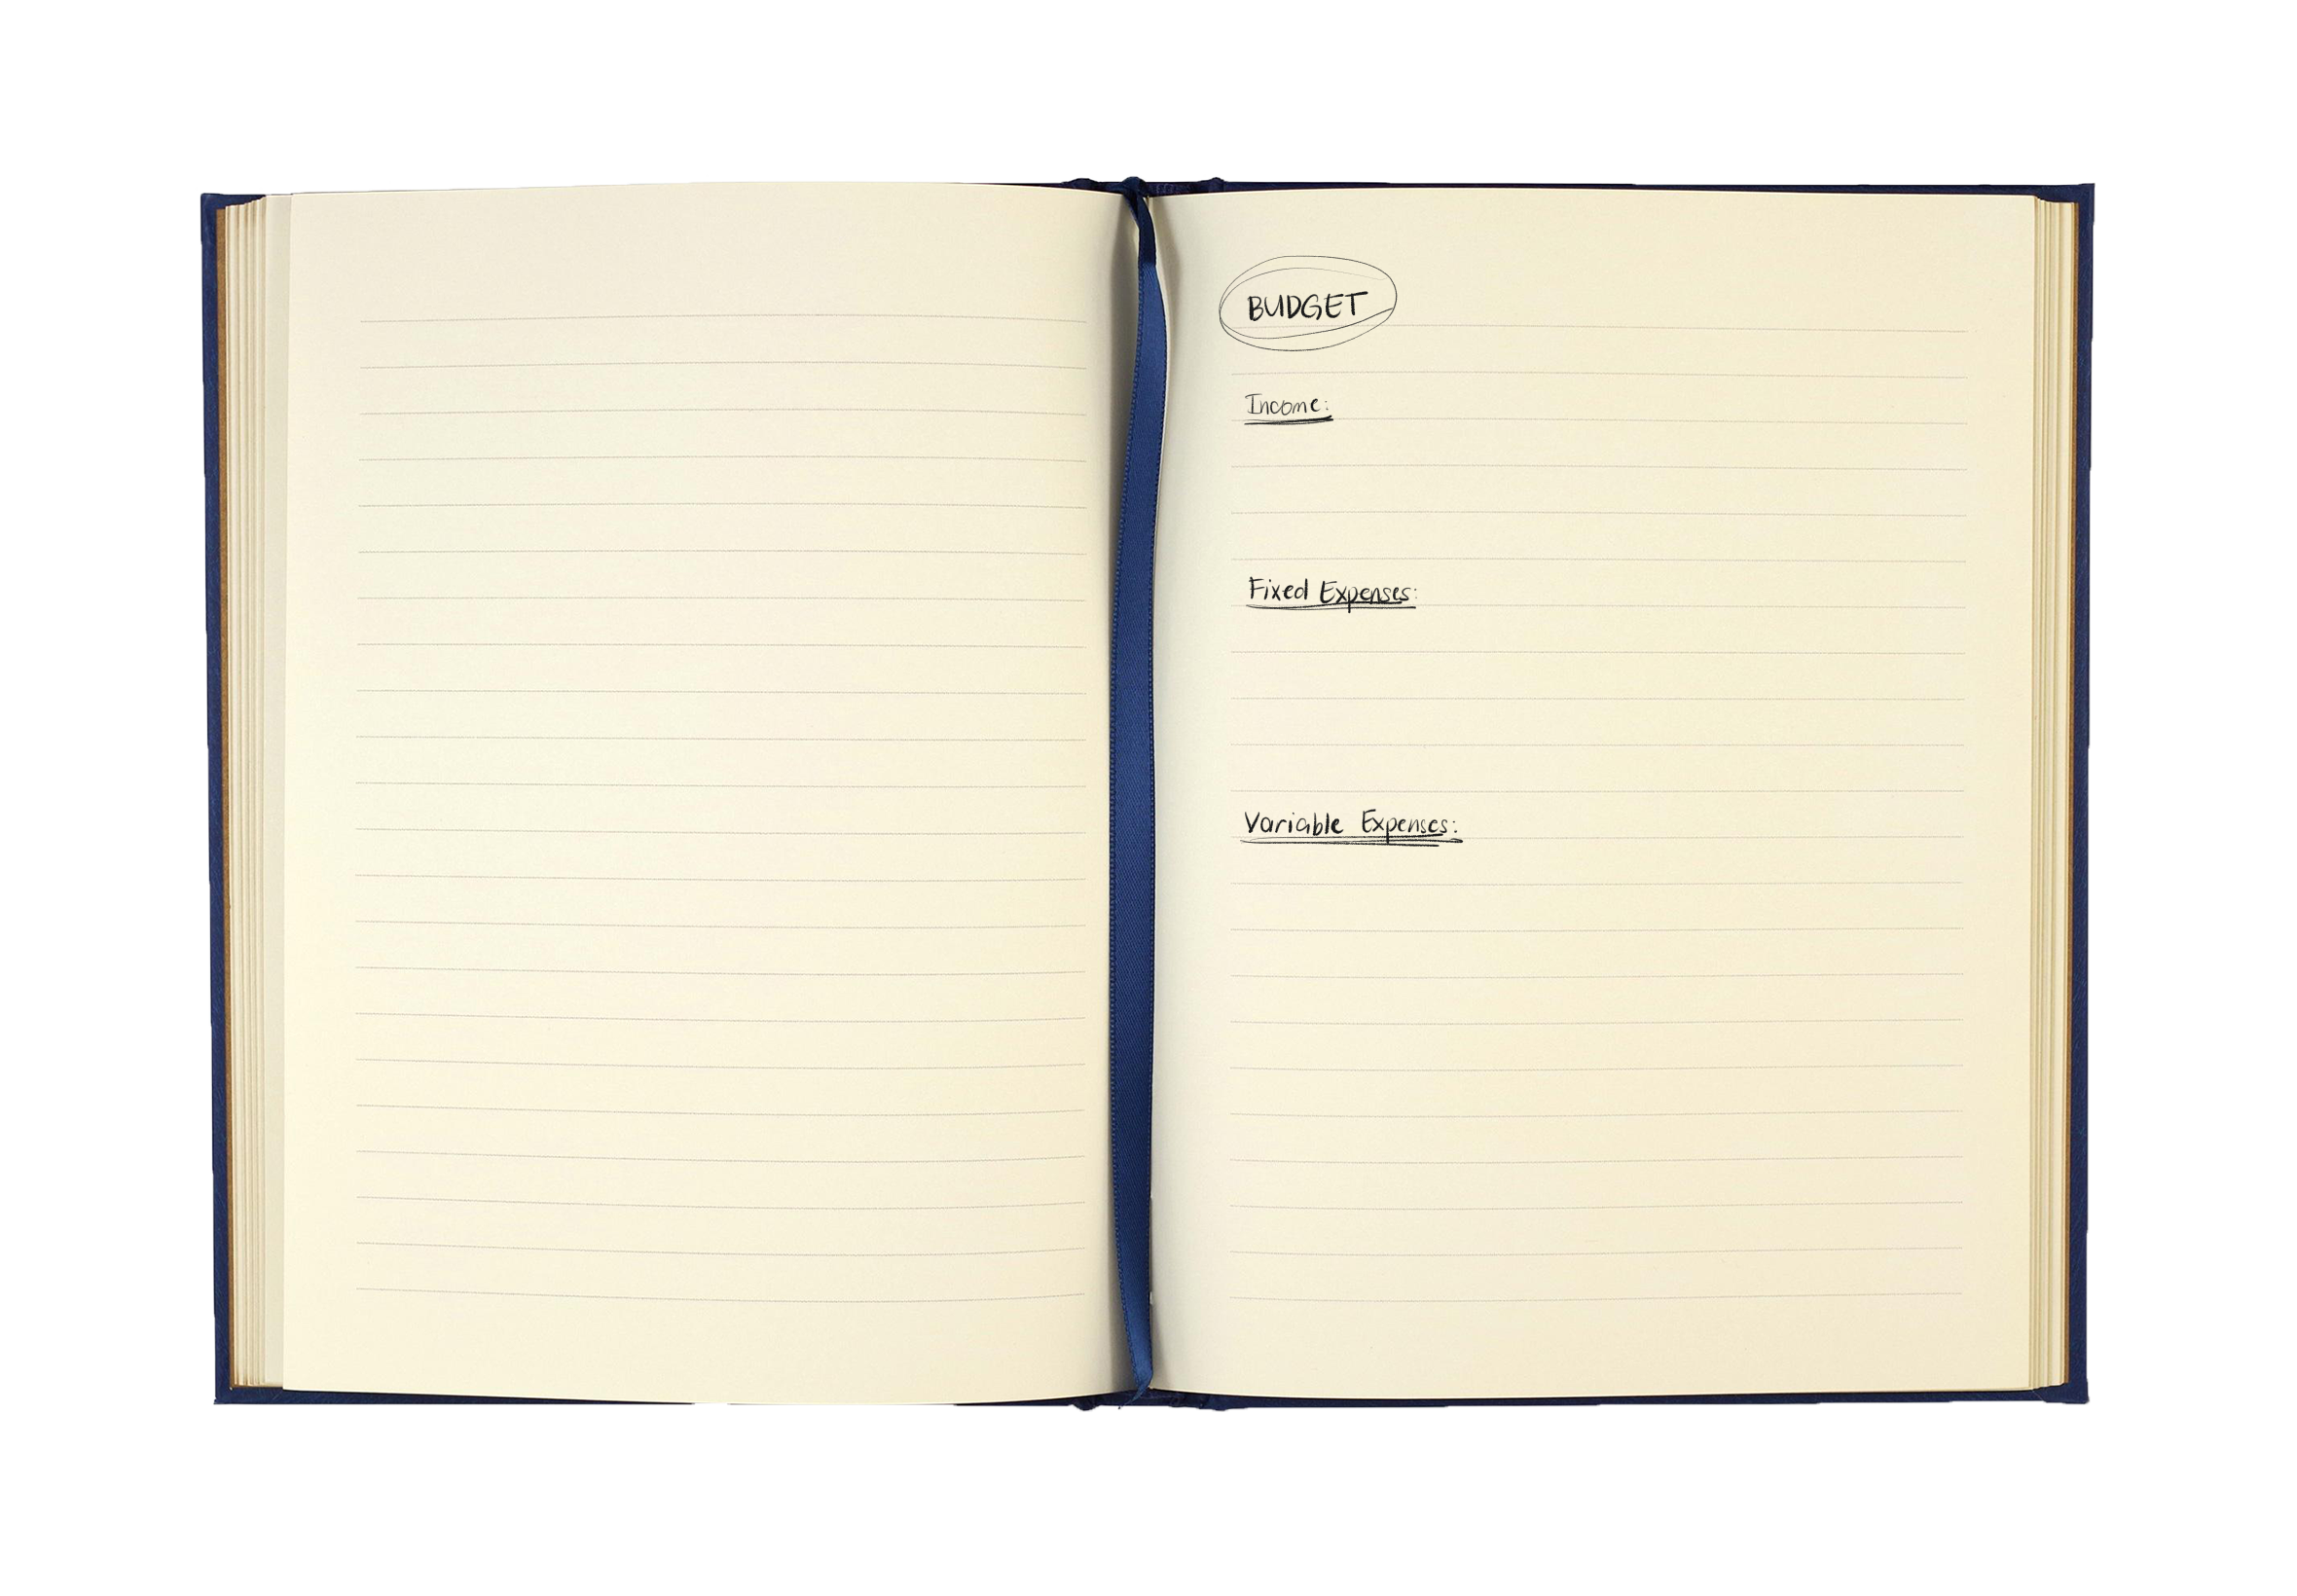 BUDGET
Income:
Fixed Expenses:
Variable Expenses: